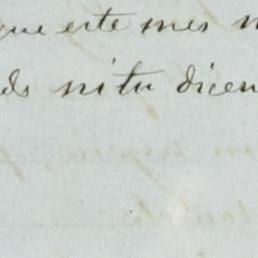 que este mes
ni tu dicen